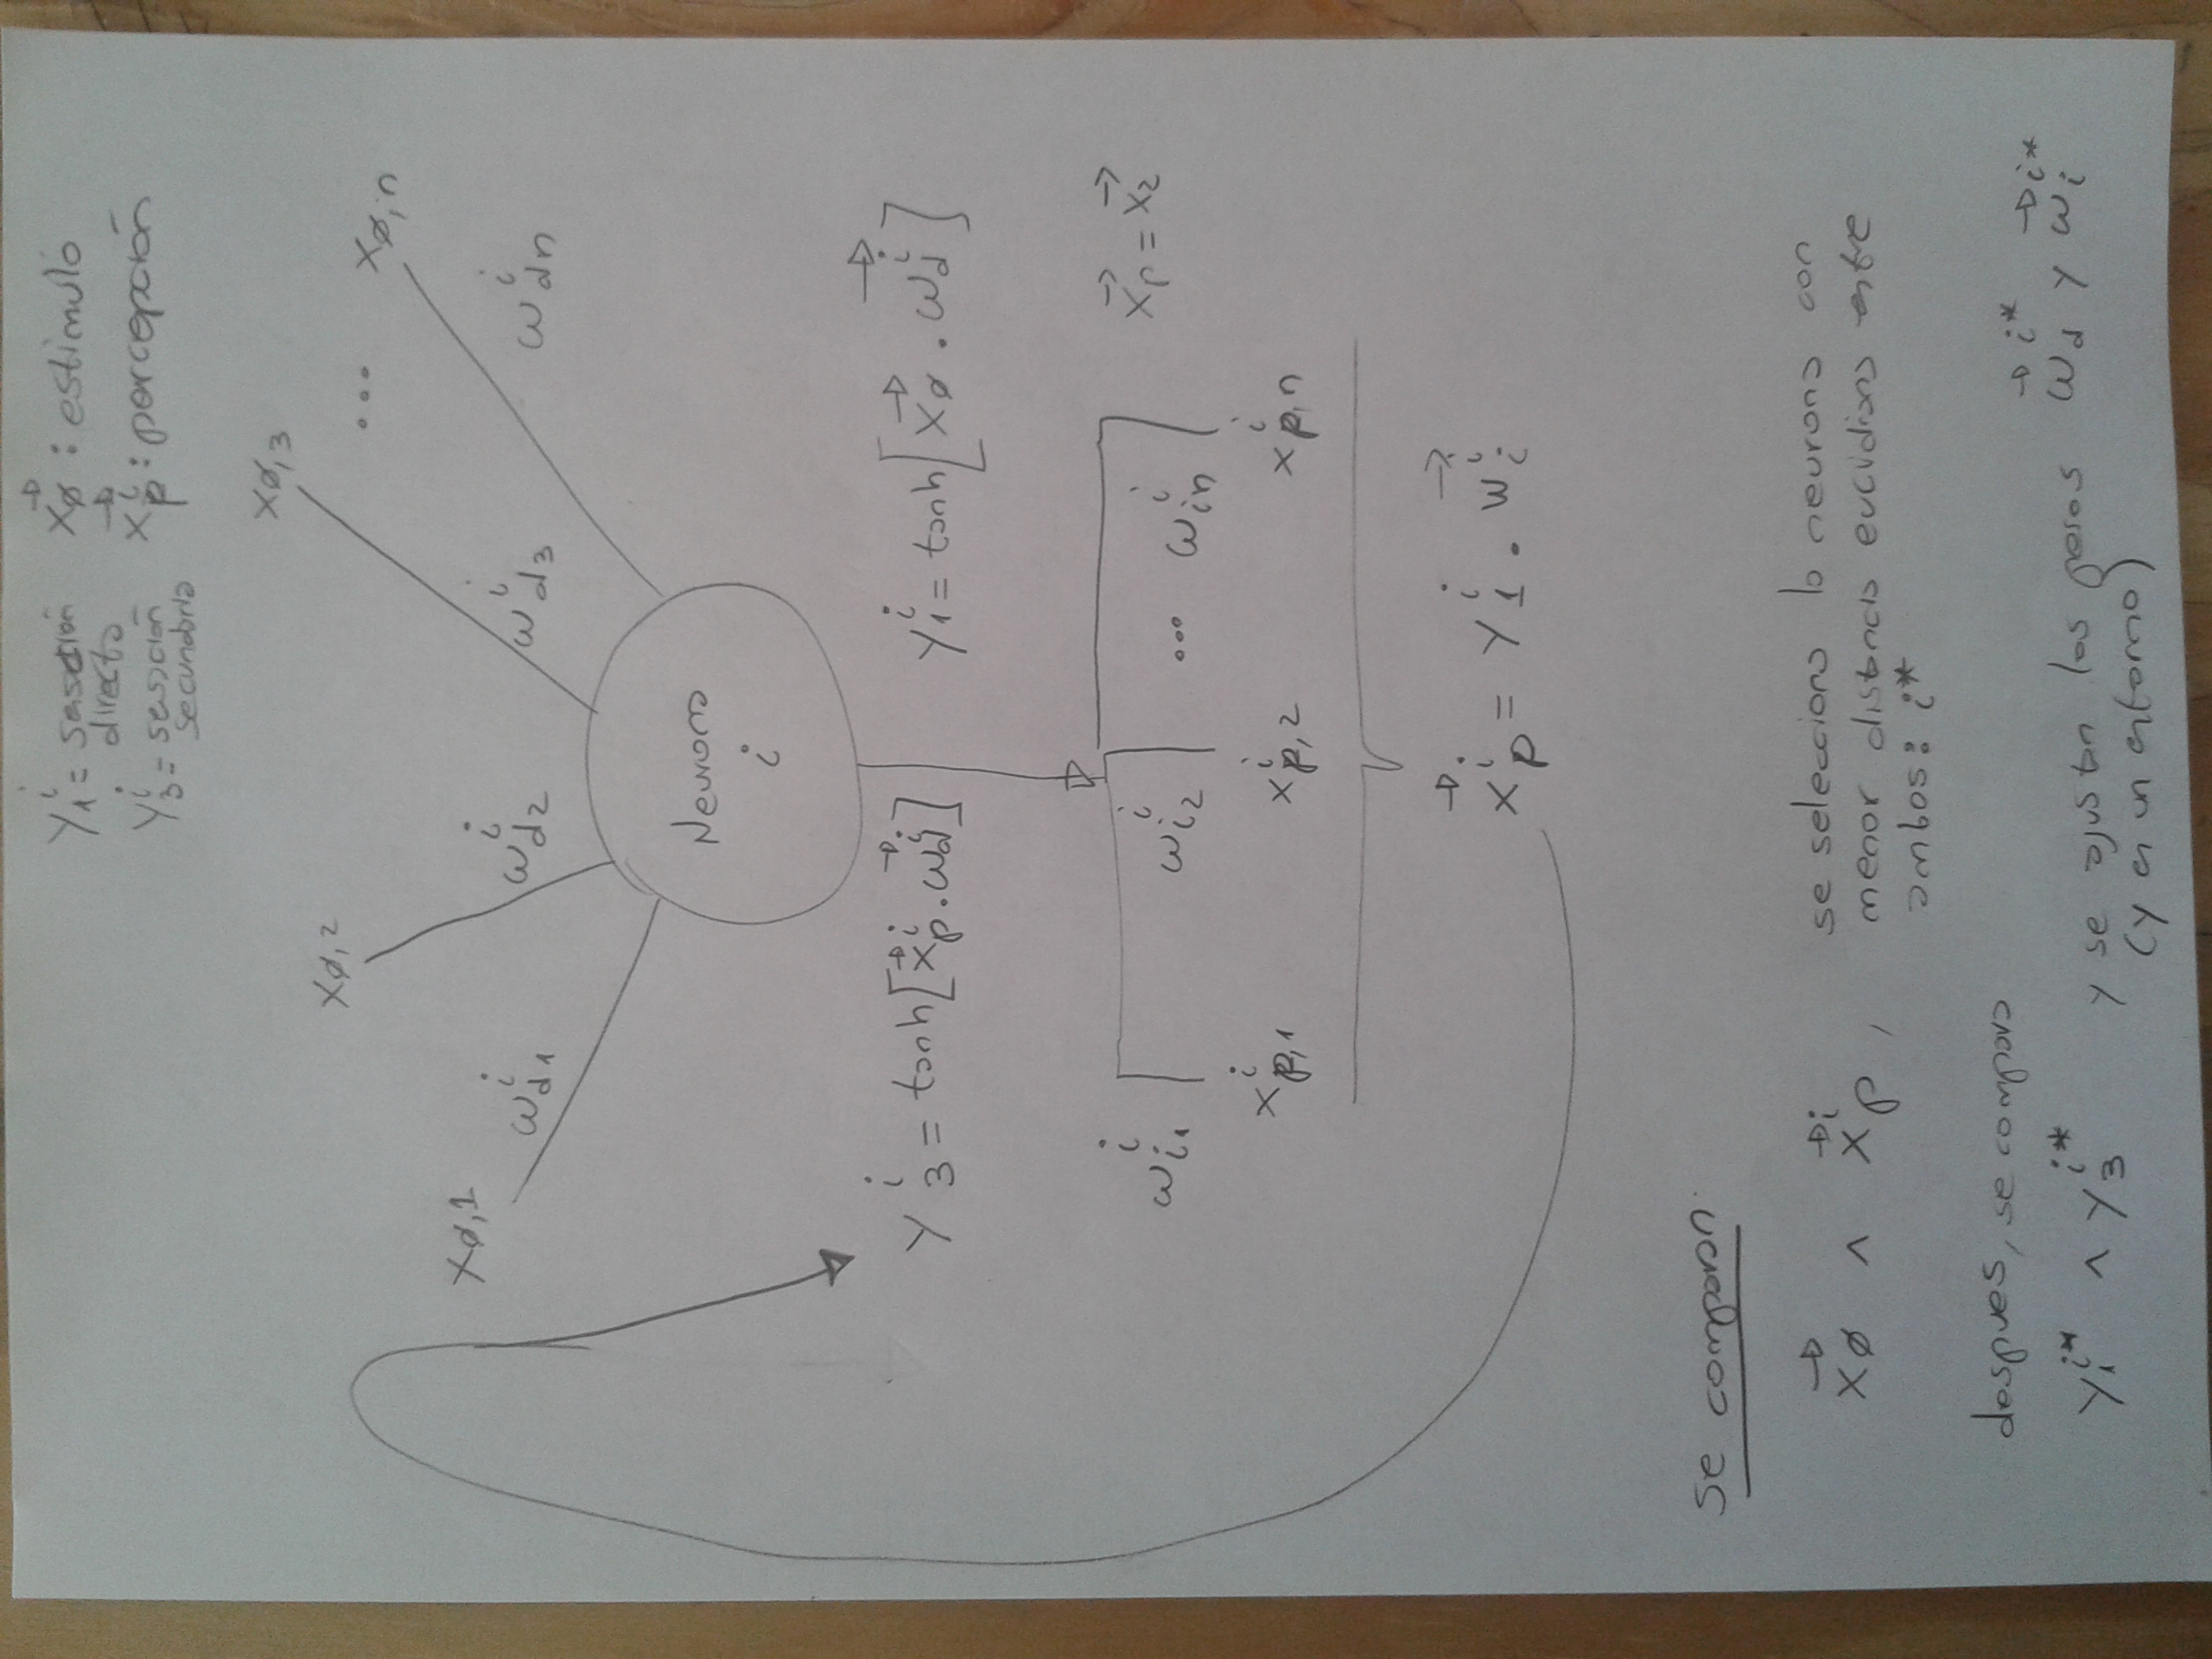 y₁ⁱ = sensación directa
y₃ⁱ = sensación secundaria
x⃗ø : estimulo
x⃗pⁱ : percepción
xø,1
xø,2
xø,3
...
xø,n
ωⁱd1
ωⁱd2
ωⁱd3
ωⁱdn
Neurona
i
y₃ⁱ = tanh[x⃗pⁱ . ω⃗dⁱ]
y₁ⁱ = tanh[x⃗ø . ω⃗dⁱ]
ωⁱi1
ωⁱi2
...
ωⁱin
x⃗p = x⃗2
xⁱp,1
xⁱp,2
xⁱp,n
x⃗pⁱ = y₁ⁱ . ω⃗iⁱ
Se comparan
x⃗ø ∧ x⃗pⁱ ,
se selecciona la neurona con
menor distancia euclidiana entre
ambos: i*
despues, se compara
y₁ⁱ* ∧ y₃ⁱ*
y se ajustan los pesos ω⃗dⁱ* y ω⃗iⁱ*
(y en un entorno)